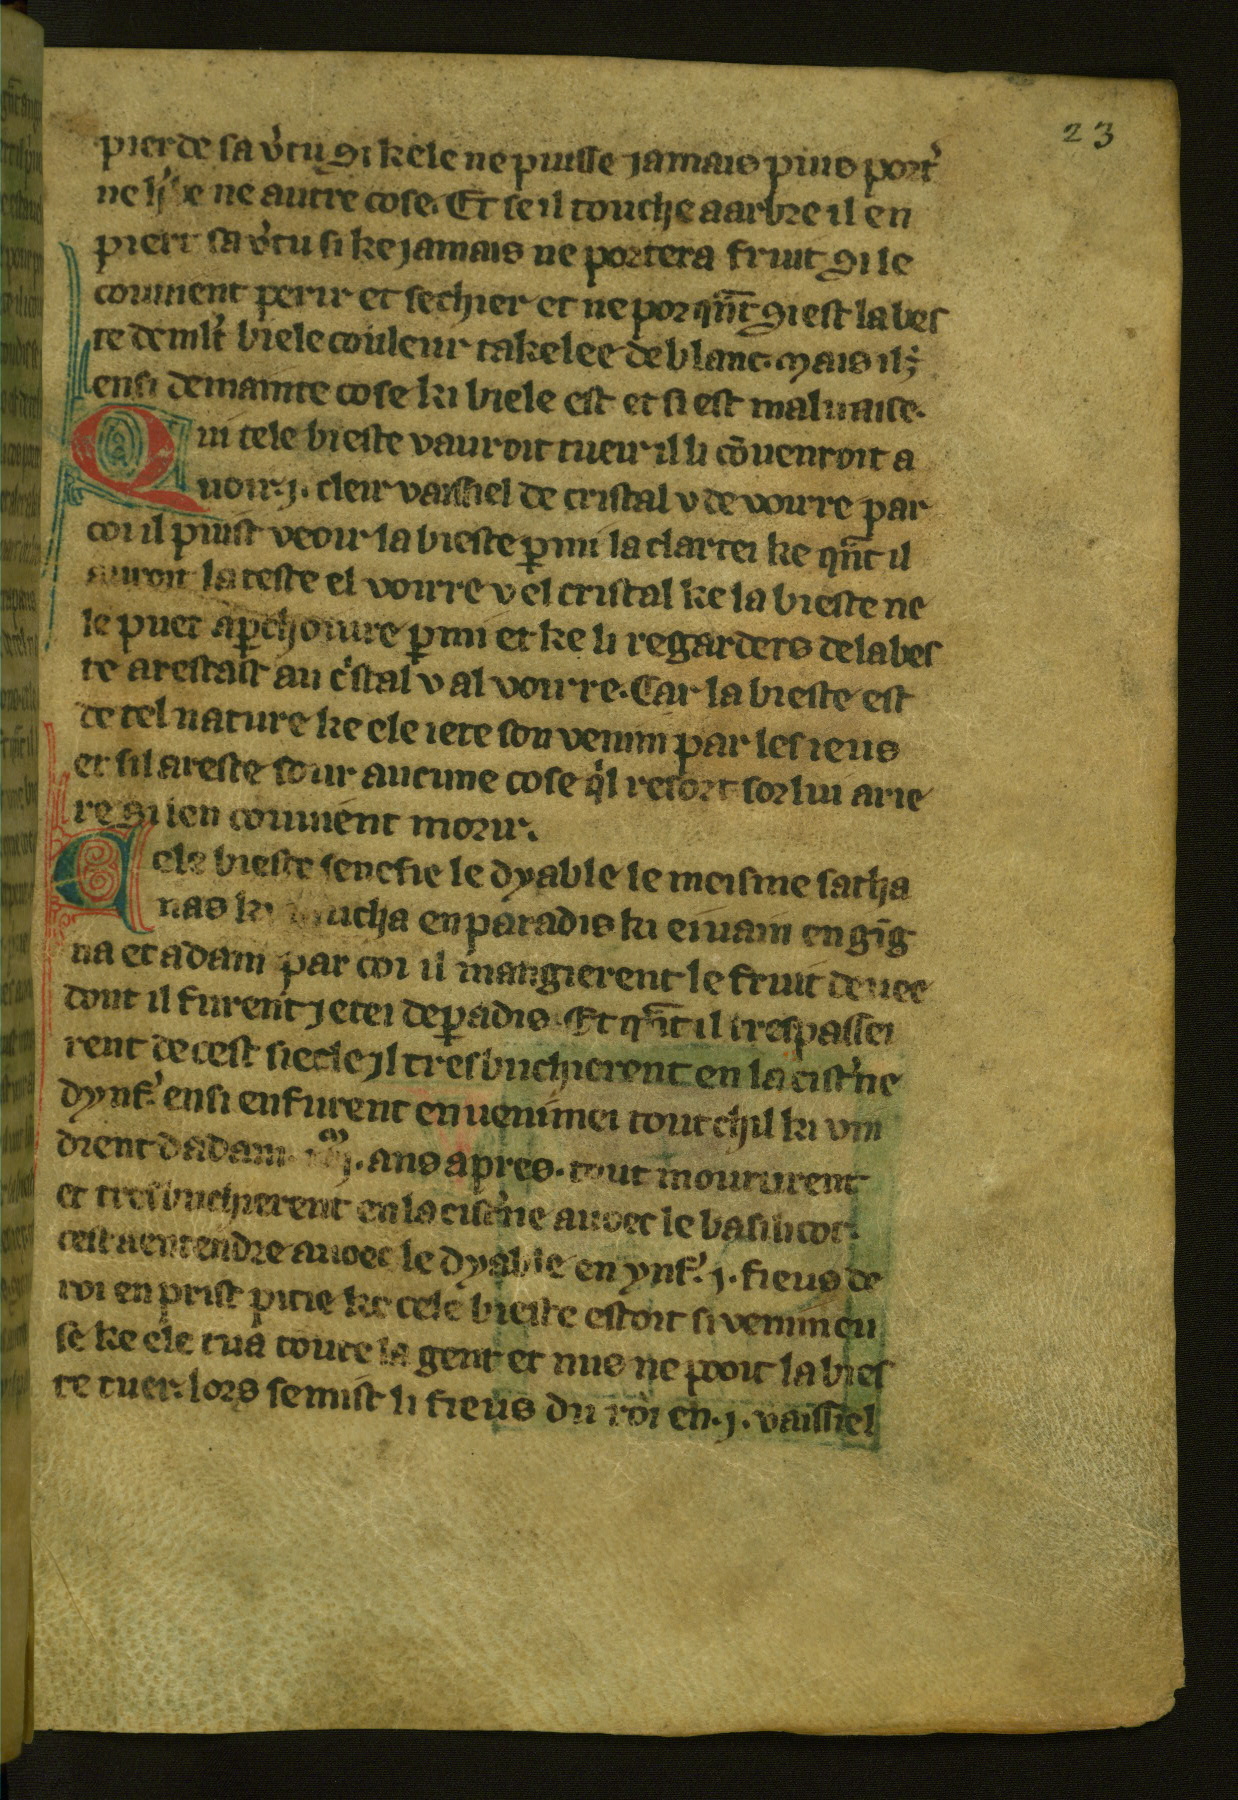 23
pierde sa v̾tu si kele ne puisse jamais puis port̾
ne ne autre cose. Et se il touche a arbre il en
piert sa v̾tu si ke jamais ne portera fruit si le
couuient perir et sechier et ne por qn̄t si est la bes
te de mlt̾ biele couleur takelee de blanc. mais il ꝫ
ensi de mainte cose ki biele est et si est maluaise.
Qui tele bieste vauroit tueir il li cōuenroit a
uoir .j. cleir vaissiel de cristal v de voirre par
coi il puist veoir la bieste ꝑmi la clartei ke qn̄t il
auroit la teste el voirre v el cristal ke la bieste ne
le puet ꝑmi et ke li regarders de la bes
te arestast au c'stal v al voirre. Car la bieste est
de tel nature ke ele iete son venim par les ieus
et sil areste sour aucune cose q'l resort sor lui arie
re si len couuient morir.
Cele bieste senefie le dyable le meisme satha
nas ki mucha en paradis ki euain engig
na et adam par coi il mangierent le fruit deuee
dont il furent jetei de ꝑadis. Et qn̄t il trespassei
rent de cest siecle jl tresbuchierent en la cist'ne
dynf.̾ ensi en furent enuenimei tout chil ki vin
drent dadam. ans apres. tout moururent
et tresbuchierent en la cist'ne auoec le basilicoc.
cest a entendre auoec le dyable en ynf.̾ .j. fieus de
roi en prist pitie ke cele bieste estoit si venimeu
se ke ele tua toute la gent et nus ne pooit la bies
te tuer. lors se mist li fieus du roi en .j. vaissiel